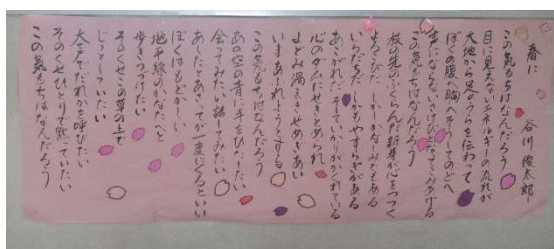 春に　谷川俊太郎
この気もちはなんだろう
目に見えないエネルギーの流れが
大地から足のうらを伝わって
ぼくの腹へ胸へそうしてのどへ
声にならないさけびとなってこみあげる
この気もちはなんだろう
枝の先のふくらんだ新芽が心をつつく
よろこびだ しかしかなしみでもある
いらだちだ しかもやすらぎがある
あこがれだ そしていかりがかくれている
心のダムにせきとめられ
よどみ渦まきせめぎあい
いまあふれようとする
この気もちはなんだろう
あの空の青に手をひたしたい
会ったことのないすべての人と
会ってみたい話してみたい
あしたとあさってが一度にくるといい
ぼくはもどかしい
地平線のかなたへと
歩きつづけたい
そのくせこの草の上で
じっとしていたい
大声でだれかを呼びたい
そのくせひとりで黙っていたい
この気もちはなんだろう